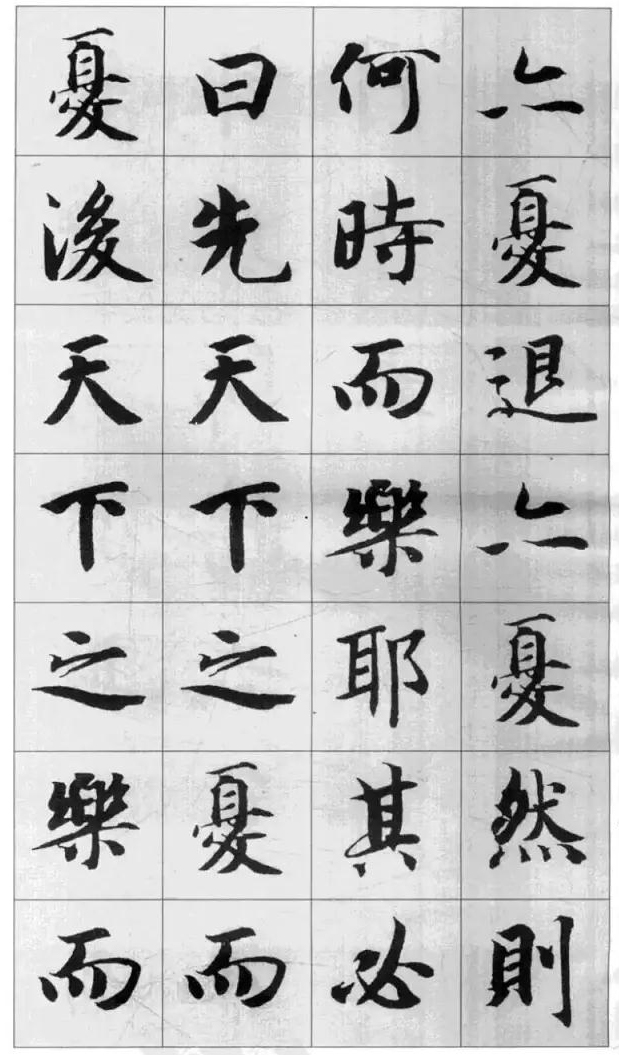 亦憂退亦憂然則
何時而樂耶其必
曰先天下之憂而
憂後天下之樂而